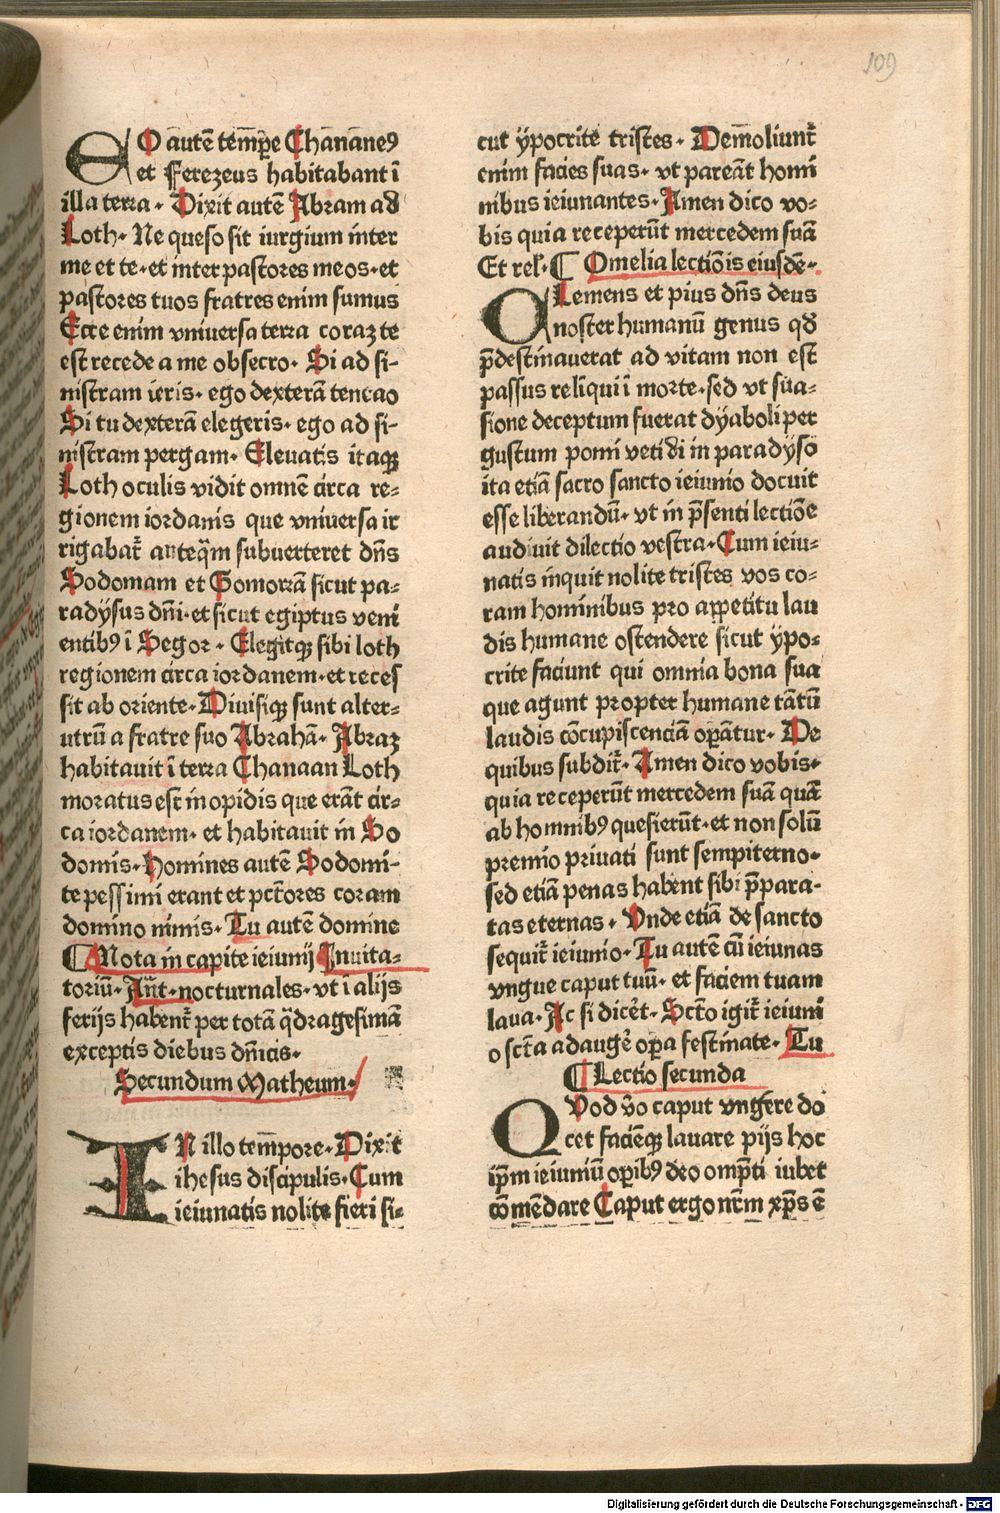 109
EO autē temp̄e Chānane⁹
et Ferezeus habitabant ī
illa terra. Dixit autē Abram ad
Loth. Ne queso sit iurgium inter
me et te. et inter pastores meos. et
pastores tuos fratres enim sumus
Ecce enim vniuersa terra coraz te
est recede a me obsecro. Si ad si-
nistram ieris. ego dexterā tenebo
Si tu dexterā elegeris. ego ad si-
nistram pergam. Eleuatis itaqꝫ
Loth oculis vidit omnē circa re-
gionem iordanis que vniuersa ir
rigabat᷑ anteq̄m subuerteret dn̄s
Sodomam et Gomorrā sicut pa-
radÿsus dn̄i. et sicut egiptus veni
entib⁹ ī Segor. Elegitqꝫ sibi loth
regionem circa iordanem. et reces
sit ab oriente. Diuisiqꝫ sunt alter-
utrū a fratre suo Abrahā. Abraz
habitauit ī terra Chanaan Loth
moratus est in opidis que erāt cir-
ca iordanem. et habitauit in So
domis. Homines autē Sodomi-
te pessimi erant et pctōres coram
domino nimis. Tu autē domine
¶ Nota in capite ieiunij Inuita-
toriū. Ant̄. nocturnales. vt ī alijs
ferijs habent᷑ per totā q̄dragesimā
exceptis diebus dn̄icis.
Secundum Matheum.
IN illo temp̄ore. Dixit
ihesus discipulis. Cum
ieiunatis nolite fieri si-
cut ÿpocrite tristes. Demoliunt᷑
enim facies suas. vt pareāt homi
nibus ieiunantes. Amen dico vo-
bis quia receperūt mercedem suā
Et rel̄. ¶ Omelia lectiōis eiusdē.
CLemens et pius dn̄s deus
noster humanū genus qd̄
p̄destinauerat ad vitam non est
passus reliqui ī morte. sed vt sua-
sione deceptum fuerat dÿaboli per
gustum pomi vetiti in paradÿso
ita etiā sacro sancto ieiunio docuit
esse liberandū. vt in p̄senti lectiōe
audiuit dilectio vestra. Cum ieiu-
natis inquit nolite tristes vos co-
ram hominibus pro appetitu lau
dis humane ostendere sicut ÿpo-
crite faciunt qui omnia bona sua
que agunt propter humane tātū
laudis cōcupiscenciā op̄ātur. De
quibus subdit᷑. Amen dico vobis.
quia receperūt mercedem suā quā
ab hominib⁹ quesierūt. et non solū
premio priuati sunt sempiterno.
sed etiā penas habent sibi p̄para-
tas eternas. Vnde etiā de sancto
sequit᷑ ieiunio. Tu autē cū ieiunas
vngue caput tuū. et faciem tuam
laua. Ac si dicēt. Sctō igit᷑ ieiuni
o sctā adaugē op̄a festinate. Tu
¶ Lectio secunda
QVod v̄o caput vngere do
cet faciēqꝫ lauare pijs hoc
ip̄m ieiuniū op̄ib⁹ deo omp̄ti iubet
cōmēdare Caput ergo nr̄m xp̄s ē
Digitalisierung gefördert durch die Deutsche Forschungsgemeinschaft - DFG